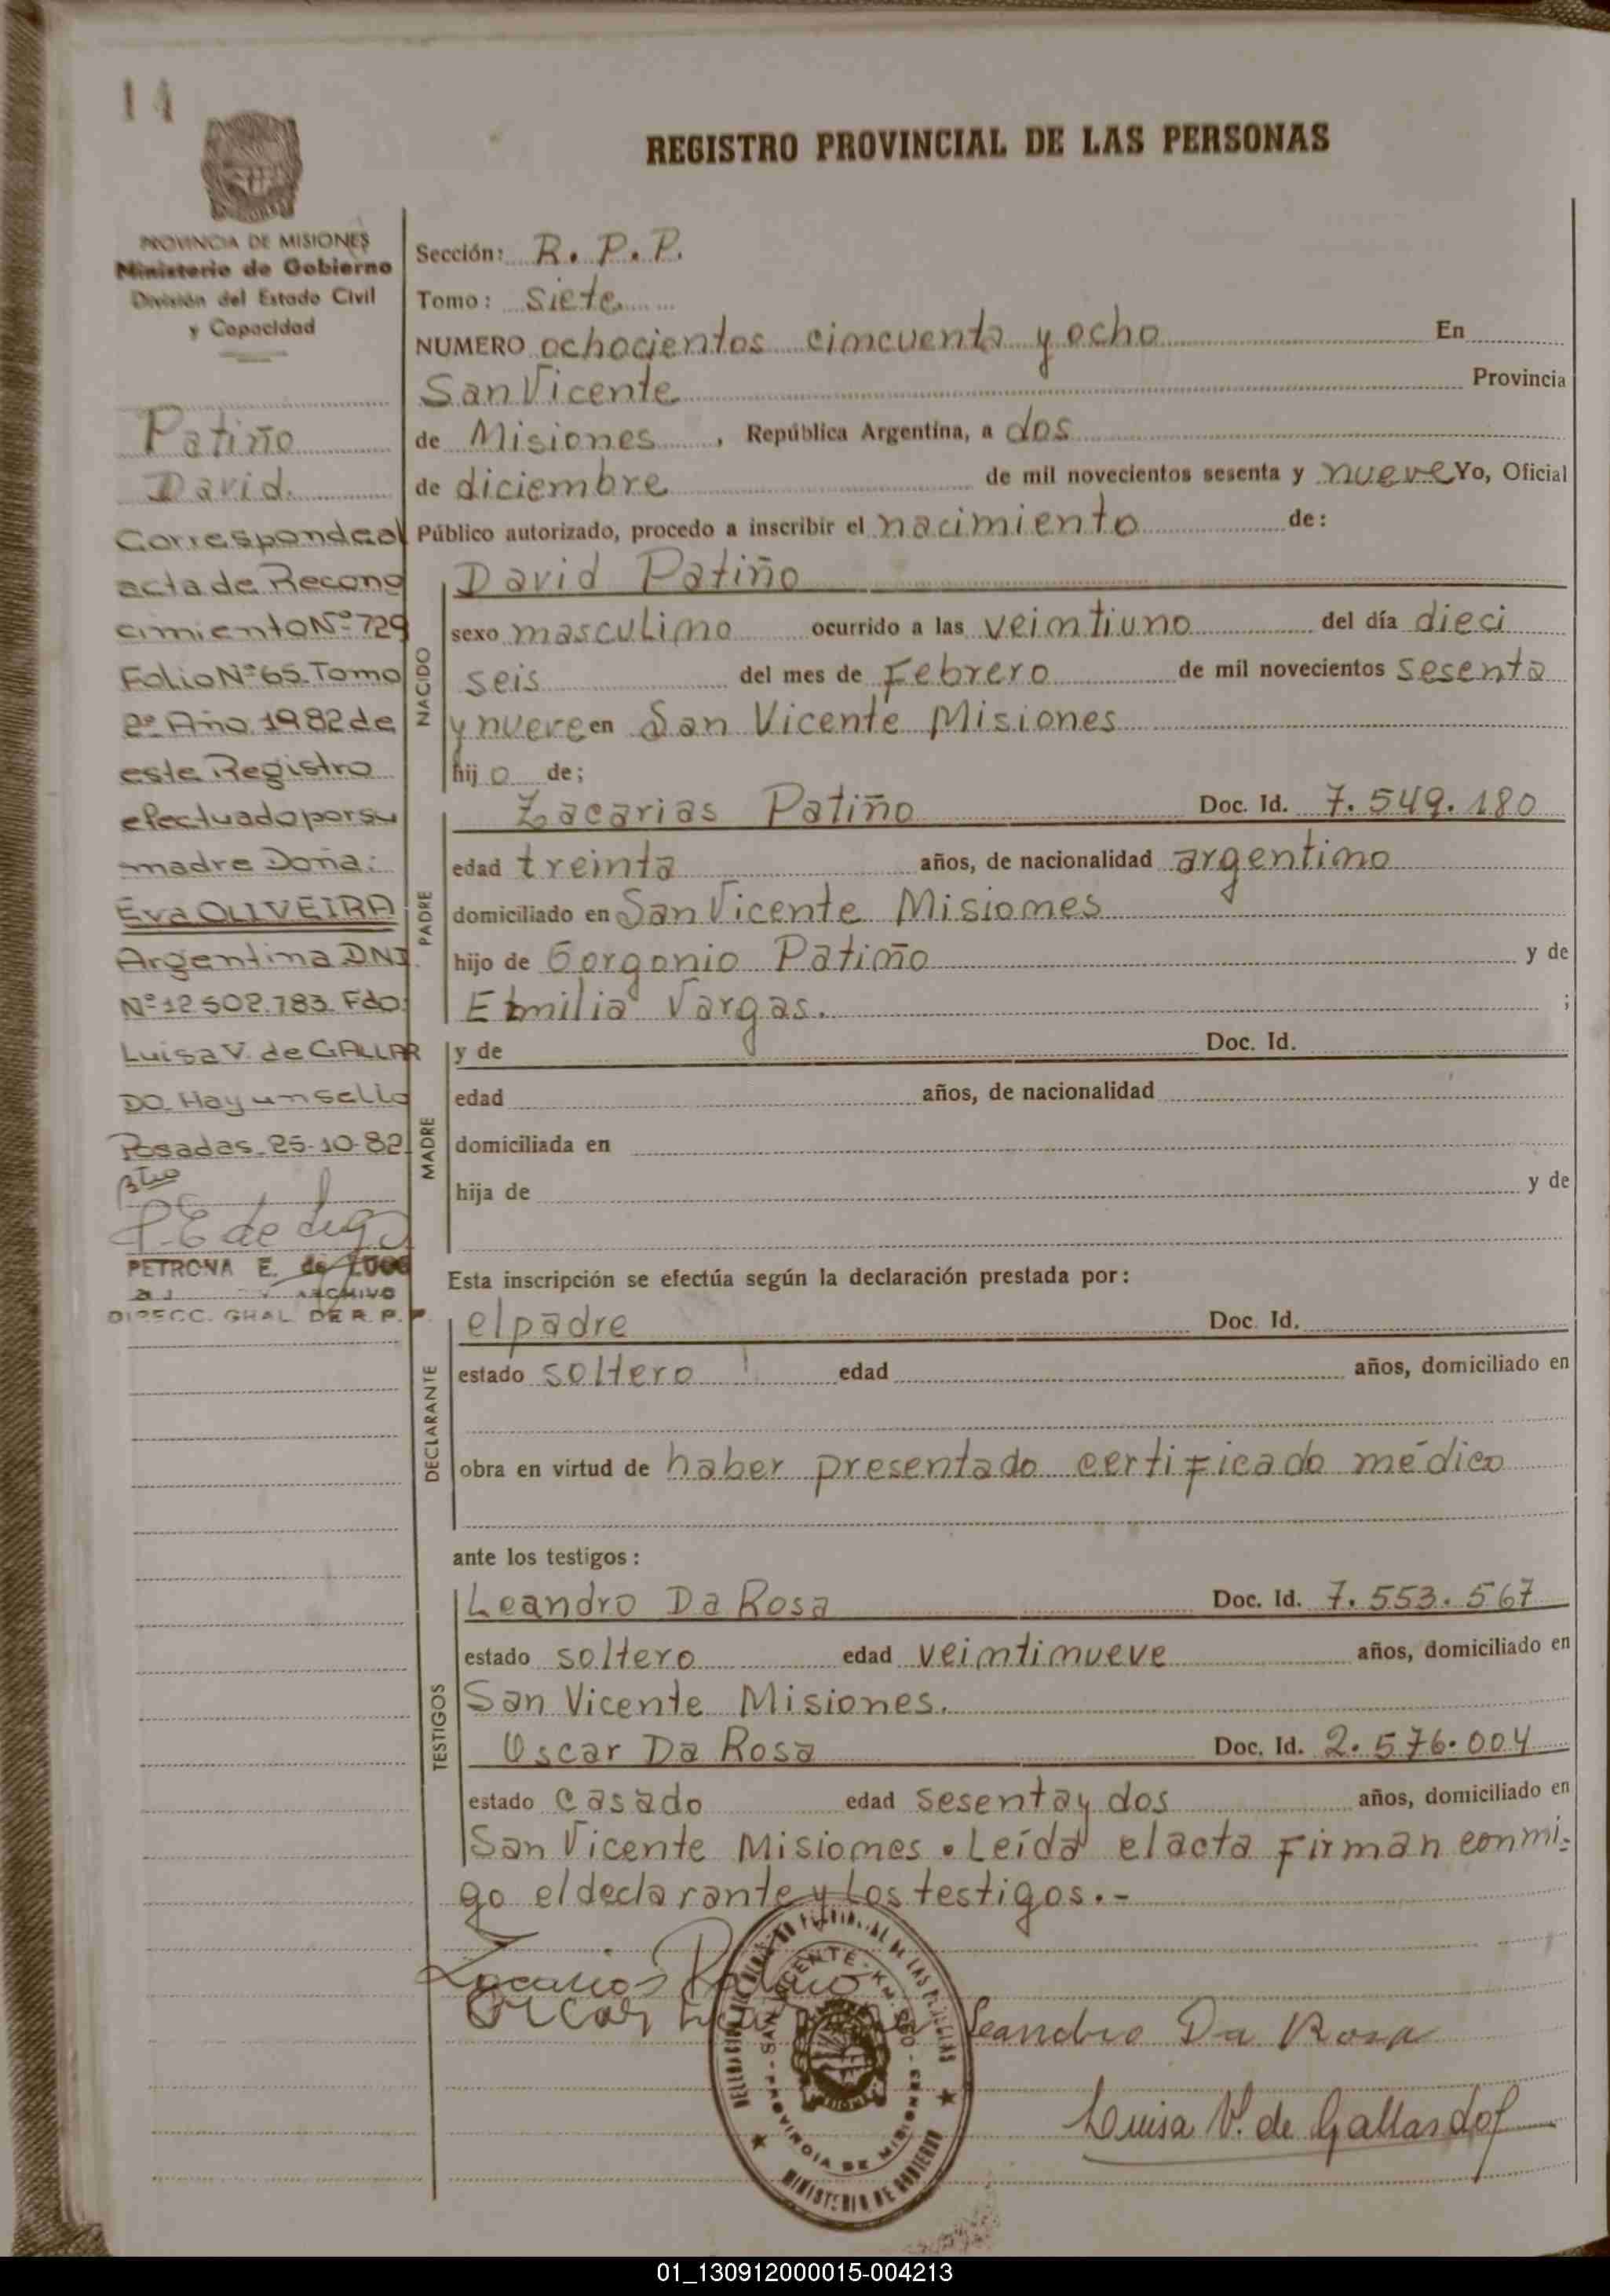 14
REGISTRO PROVINCIAL DE LAS PERSONAS
PROVINCIA DE MISIONES
Ministerio de Gobierno
División del Estado Civil
y Capacidad
Patiño
David.
Corresponde al
acta de Recono
cimiento Nº 729
Folio Nº 65. Tomo
2º Año 1982 de
este Registro
efectuado por su
madre Doña:
Eva OLIVEIRA
Argentina DNI.
Nº 12.502.783. Fdo:
Luisa V. de GALLAR
DO. Hay un sello
Posadas. 25-10-82
PETRONA E. de
ARCHIVO
DIRECC. GRAL. DE R. P. P.
Sección: R. P. P.
Tomo: Siete
NUMERO ochocientos cimcuenta y ocho En
San Vicente Provincia
de Misiones, República Argentina, a dos
de diciembre de mil novecientos sesenta y nueve Yo, Oficial
Público autorizado, procedo a inscribir el nacimiento de:
NACIDO
David Patiño
sexo masculino ocurrido a las veintiuno del día dieci
seis del mes de Febrero de mil novecientos sesenta
y nueve en San Vicente Misiones
hijo de;
PADRE
Zacarias Patiño Doc. Id. 7.549.180
edad treinta años, de nacionalidad argentino
domiciliado en San Vicente Misiones
hijo de Gorgonio Patiño y de
Emilia Vargas. ;
MADRE
y de Doc. Id.
edad años, de nacionalidad
domiciliada en
hija de y de
Esta inscripción se efectúa según la declaración prestada por:
DECLARANTE
el padre Doc. Id.
estado soltero edad años, domiciliado en
obra en virtud de haber presentado certificado médico
ante los testigos:
TESTIGOS
Leandro Da Rosa Doc. Id. 7.553.567
estado soltero edad veintinueve años, domiciliado en
San Vicente Misiones.
Oscar Da Rosa Doc. Id. 2.576.004
estado casado edad sesenta y dos años, domiciliado en
San Vicente Misiones. Leída el acta firman conmi-
go el declarante y los testigos.-
Zacarias Patiño
Oscar
Leandro Da Rosa
Luisa V. de Gallardo
SAN VICENTE - KM.
PROVINCIA DE MISIONES
MINISTERIO DE GOBIERNO
01_130912000015-004213